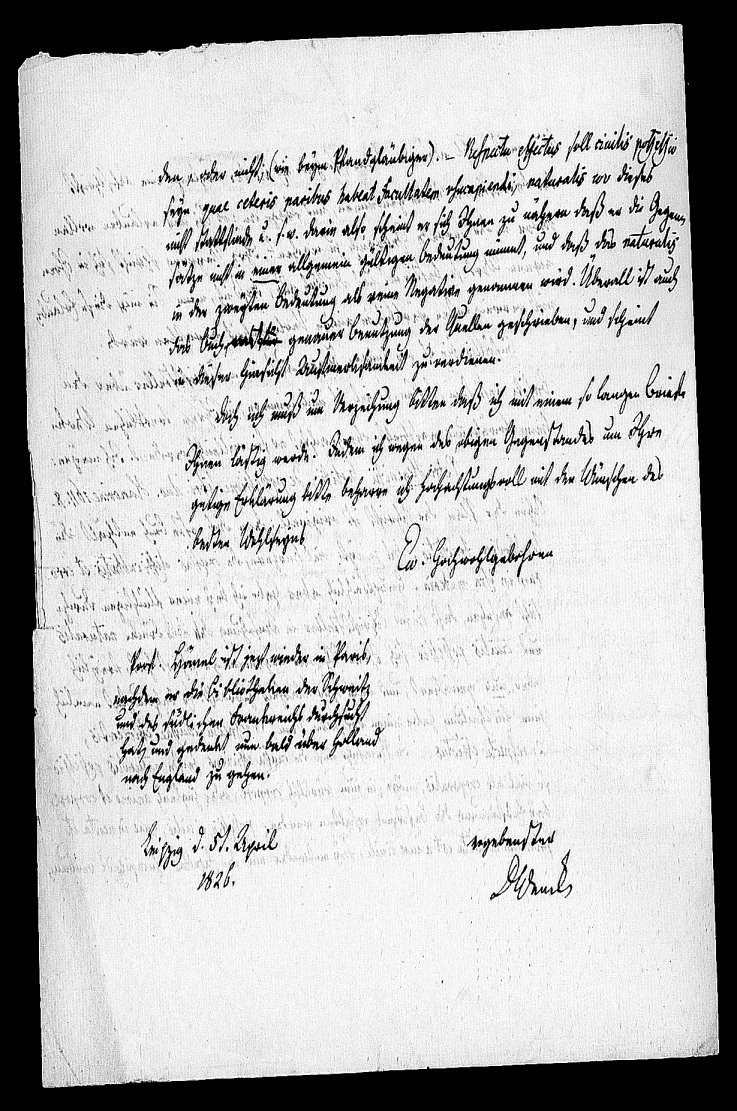 den, oder nicht, (wie beym Pfandgläubiger). – Respectu effectus soll civilis possessio
seyn, quae ceteris paribus habeat facultatem usucapiendi, naturalis wo dieses
nicht stattfinde u. s. w. darin also scheint er sich Ihnen zu nähern daß er die Gegen¬
sätze nicht in einer allgemein gültigen Bedeutung nimmt, und daß das naturalis
in der zweyten Bedeutung als reine Negative genommen wird. Überall ist auch
das Buch genauer Benutzung der Quellen geschrieben, und scheint
in dieser Hinsicht Aufmerksamkeit zu verdienen.
Doch ich muß um Verzeihung bitten daß ich mit einem so langen Briefe
Ihnen lästig werde. Indem ich wegen des obigen Gegenstandes um Ihre
gütige Erklärung bitte beharre ich hochachtungsvoll mit den Wünschen des
besten Wohlseyns
Ew. Hochwohlgebohren
Prof. Hänel ist jezt wieder in Paris,
nachdem er die Bibliotheken der Schweitz
und des südlichen Frankreichs durchsucht
hat, und gedenkt nun bald über Holland
nach England zu gehen.
Leipzig d. 5t. April
1826.
ergebenster
D Wenck